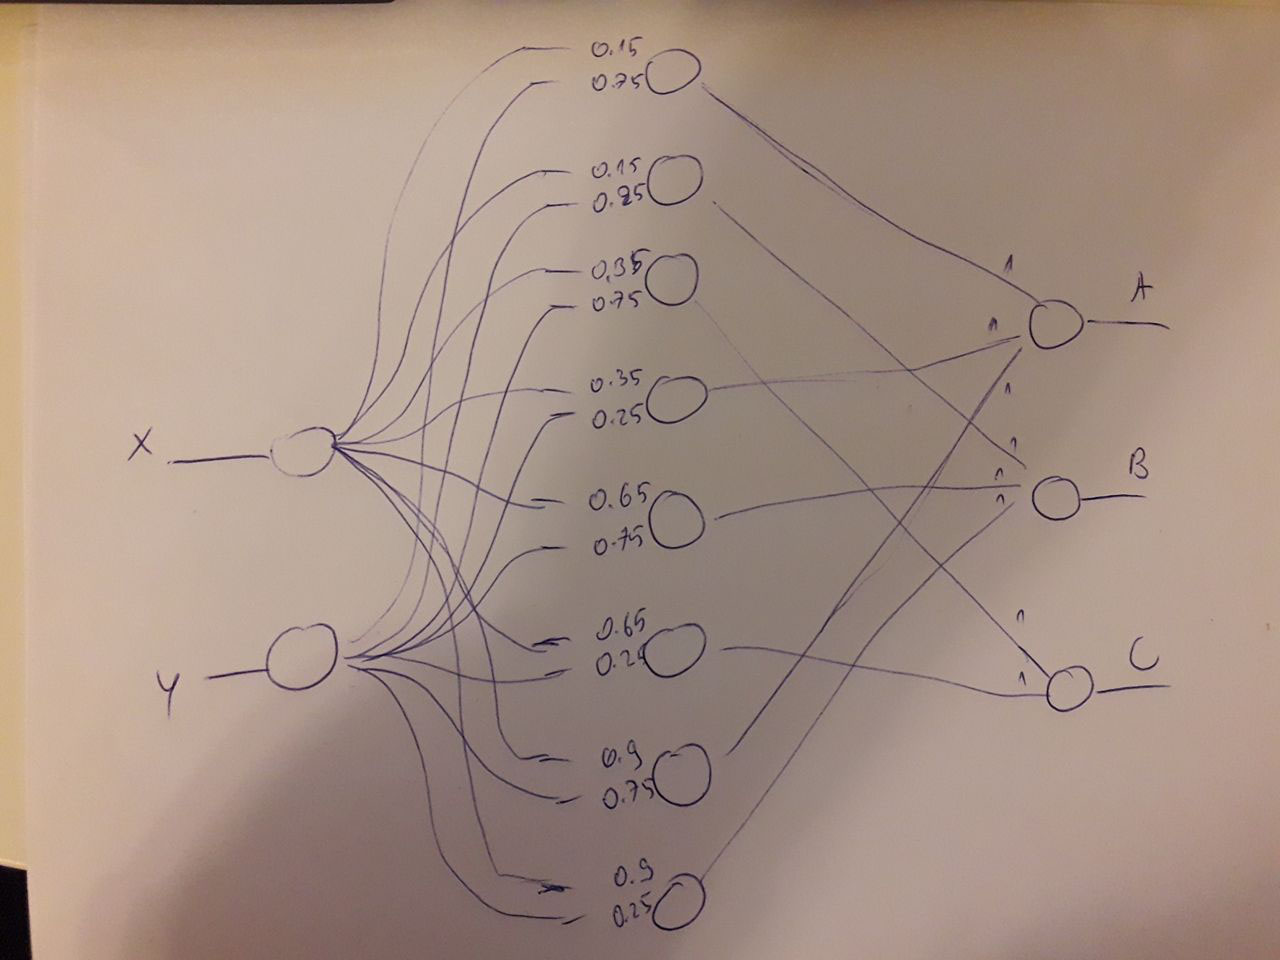 0.15
0.75
0.15
0.25
0.35
0.75
0.35
0.25
0.65
0.75
0.65
0.25
0.9
0.75
0.9
0.25
X
Y
1
1
1
A
1
1
1
B
1
1
C